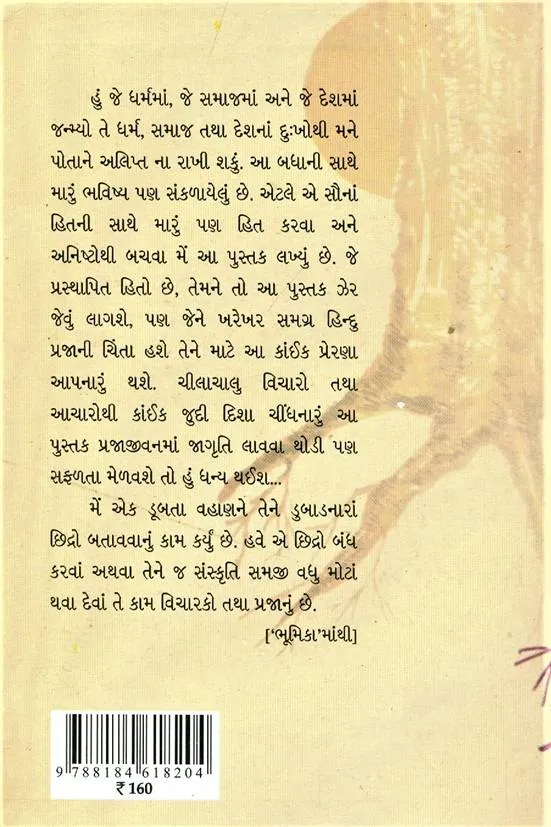 હું જે ધર્મમાં, જે સમાજમાં અને જે દેશમાં
જન્મ્યો તે ધર્મ, સમાજ તથા દેશનાં દુઃખોથી મને
પોતાને અલિપ્ત ના રાખી શકું. આ બધાની સાથે
મારું ભવિષ્ય પણ સંકળાયેલું છે. એટલે એ સૌનાં
હિતની સાથે મારું પણ હિત કરવા અને
અનિષ્ટોથી બચવા મેં આ પુસ્તક લખ્યું છે. જે
પ્રસ્થાપિત હિતો છે, તેમને તો આ પુસ્તક ઝેર
જેવું લાગશે, પણ જેને ખરેખર સમગ્ર હિન્દુ
પ્રજાની ચિંતા હશે તેને માટે આ કાંઈક પ્રેરણા
આપનારું થશે. ચીલાચાલુ વિચારો તથા
આચારોથી કાંઈક જુદી દિશા ચીંધનારું આ
પુસ્તક પ્રજાજીવનમાં જાગૃતિ લાવવા થોડી પણ
સફળતા મેળવશે તો હું ધન્ય થઈશ...
મેં એક ડૂબતા વહાણને તેને ડુબાડનારાં
છિદ્રો બતાવવાનું કામ કર્યું છે. હવે એ છિદ્રો બંધ
કરવાં અથવા તેને જ સંસ્કૃતિ સમજી વધુ મોટાં
થવા દેવાં તે કામ વિચારકો તથા પ્રજાનું છે.
['ભૂમિકા'માંથી]
9 788184 618204
₹ 160